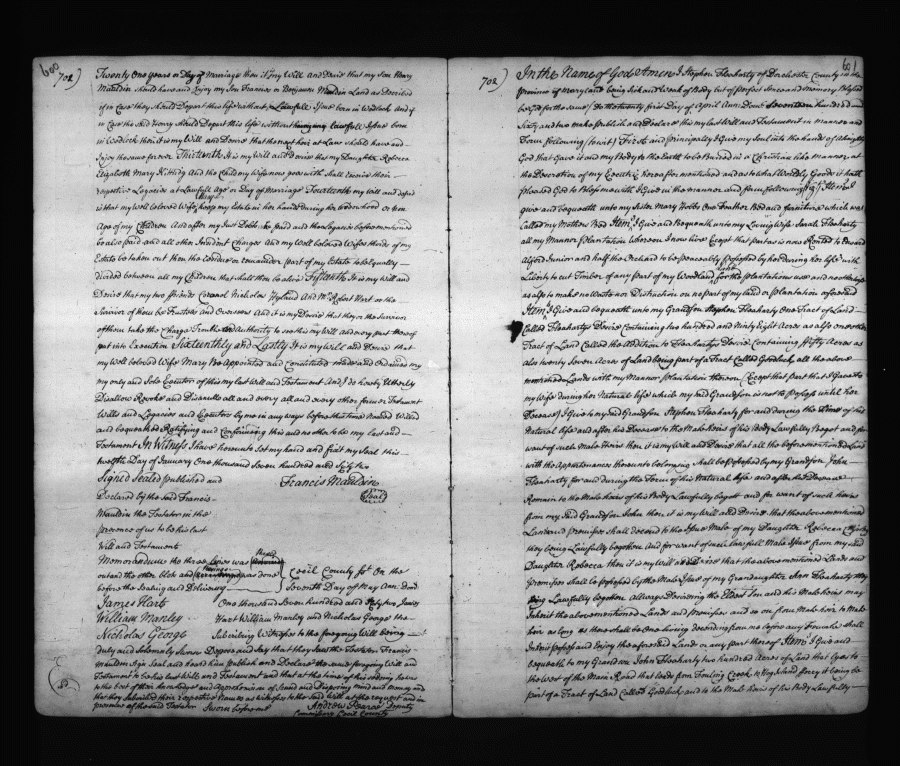 600
702)
Twenty One years or Day of Marriage then it is my Will and Desire that my Son Henry
Mauldin should have and Enjoy my Son Francis or Benjamin Mauldin Land as Decribed
if in Case they should Depart this life without Lawfull Issue born in Wedlock and if
in Case the said Henry should Depart this life without lawfull Issue born
in Wedlock then it is my Will and Desire that the next heir at Law should have and
Enjoy the same forever Thirteenth It is my Will and Desire that my Daughter Rebecca
Elizabeth Mary Kittidg And the Child my Wife now goes with shall receive their
respective Legacies at lawfull Age or Day of Marriage Fourteenth my will and desire
is that my well beloved Wife Mary keep my Estate in her hands during her widowhood or
Age of my Children And after my Just Debts be paid and the Legacies before mentioned
be also paid and all other Incident Charges And my Well beloved Wifes thirds of my
Estate be taken out then the residue or remainder part of my Estate to be Equally
divided between all my Children that shall then be alive Fifteenth It is my Will and
Desire that my two ffriends Colonel Nicholas Hyland And Mr Robert Hart or the
Survivor of them be Trustees and Overseers And it is my Desire that they or the Survivor
of them take the Charge Trouble and Authority to see this my Will and every part thereof
put into Execution Sixteenthly and Lastly It is my Will and Desire that
my Well beloved Wife Mary be Appointed and Constituted made and Ordained my
my only and Sole Executor of this my Last Will and Testament And I do hereby Utterly
Disallow Revoke and Disannull all and every all and every other former Testament
Wills and Legacies and Executors by me in any ways before this time Named Willed
and bequeathed Ratifying and Confirming this and no other to be my last and
Testament In Witness I have hereunto set my hand and first seal this
twelfth Day of January One thousand Seven hundred and Sixty two
Signed Sealed published and Francis Mauldin
Declared by the said Francis Seal
Mauldin the Testator in the
presence of us to be his last
Will and Testament
Memorandum the three lines was
outand the other blots and was done
before the Sealing and Delivering
James Hart
William Manley
Nicholas George
Cecil County Sct On the
Seventh Day of May Ann Dom
One thousand Seven hundred and Sixty two James
Hart William Manley and Nicholas George the
Subscribing Witnesses to the foregoing Will being
duly and Solemnly Sworn Depose and Say that they Saw the Testator Francis
Mauldin Sign Seal and heard him publish and Declare the said foregoing Will and
Testament to be his last Will and Testament and that at the time of his so doing he was
to the best of their knowledge and Apprehension of Sound and Disposing mind and memory and
that they Subscribed their respective Names as witnesses to the said Will at the request and in
presence of the said Testator Sworn before me Andrew Pearce Deputy
Commissary Cecil County
601
702)
In the Name of God Amen I Stephen Fleoharty of Dorchester County in the
province of Maryland being Sick and Weak of Body but of perfect Sence and Memory Blessed
be God for the same / Do the twenty first Day of April Ann: Dom: Seventeen hundred and
Sixty and two make publish and Declare this my last Will and Testament in Manner and
Form following (to wit) First and principally I Give my Soul into the hands of Almighty
God that Gave it and my Body to the Earth to be Buried in a Christian like Manner at
the Discretion of my Executrix hereafter mentioned and as to what Worldly Goods it hath
pleased God to Bless me with I Give in the manner and form following Vizt Item I
give and bequeath unto my Sister Mary Hobbs One Feather Bed and furniture which was
Called my Mothers Bed Item I Give and Bequeath unto my Loving Wife Sarah Fleoharty
all my Manner Plantation Whereon I now live Except that part as is now Rented to Edward
Alford Junior and half the Orchard to be peaceably possessed by her During her life with
Liberty to cut Timber of any part of my Woodland for the plantations use and no other
as also to make no Waste nor Distruction on no part of my land or plantation aforesaid
Item I Give and bequeath unto my Grandson Stephen Fleoharty One Tract of Land
Called Fleohartys Desire Containing two hundred and Ninty Eight Acres as also one other
Tract of Land Called the Addition to Fleohartys Desire Containing ffifty Acres as
also twenty Seven Acres of Land being part of a Tract Called Goodluck all the above
mentioned Lands with my Manner plantation thereon (Except that part that I Gave to
my Wife During her Natural life which my said Grandson is not to possess until her
Decease) I Give to my said Grandson Stephen Fleoharty for and during the Time of his
Natural life and after his Decease to the Male heirs of his Body Lawfully Begot and for
want of such Male heirs then it is my Will and Desire that all the before mentioned Land
with the Appurtenances thereunto belonging Shall be possessed by my Grandson John
Fleoharty for and during the Term of his Natural life and after his Decease
Remain to the Male heirs of his Body Lawfully begott and for want of such heirs
from my said Grandson John then it is my Will and Desire that the above mentioned
Land and promises Shall decend to the Issue Male of my Daughter Rebecca
they being Lawfully begotten and for want of such lawfull Male Issue from my said
Daughter Rebecca then it is my Will and Desire that the above mentioned Lands and
promises Shall be possessed by the Male Issue of my Grandaughter Ann Fleoharty they
being Lawfully begotten allways Deeming the Eldest Son and his Male heirs may
Inherit the above mentioned Lands and promises and so on from Male heir to Male
heir as long as there shall be One living decending from me before any Female Shall
Inherit possess and Enjoy the aforesaid Land or any part thereof Item I Give and
bequeath to my Grandson John Fleoharty two hundred Acres of Land that Lyes to
the West of the Main Road that leads from Fowling Creek to Hog Island ferry it being
part of a Tract of Land Called Goodluck and to the Male heirs of his Body Lawfully